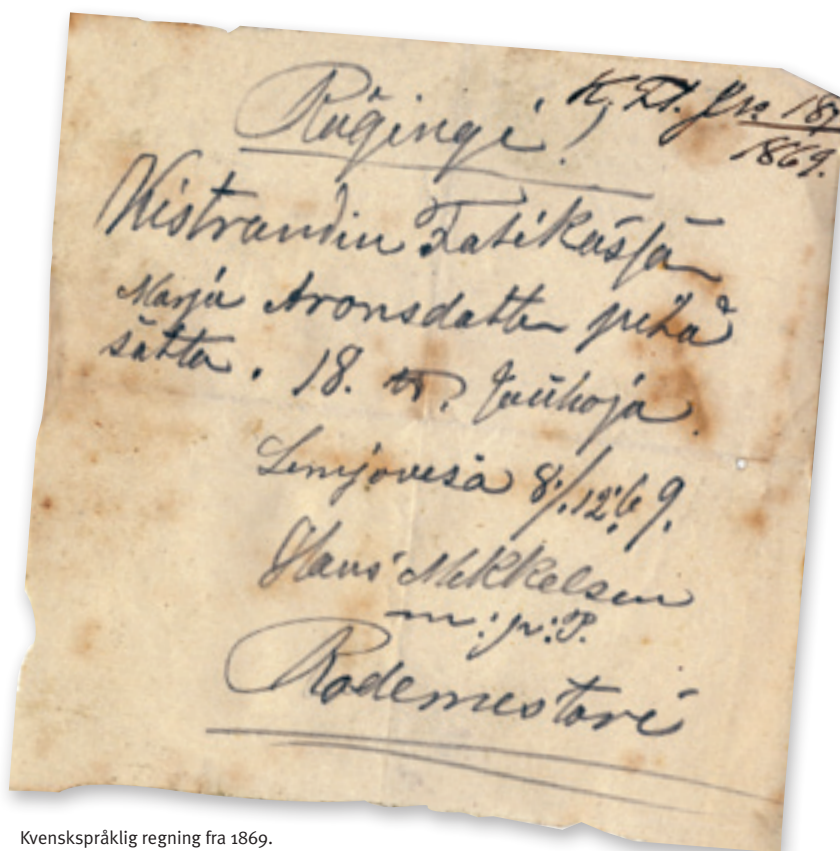 Rägingi!
K. Zt. No. 187
1869.
Kistrandin Fatikassa
Marja Aronsdatten pitä
sätta. 18. tt. Jauhoja.
Lemjovesä 8/12 69.
Hans Mikkelsen
m: p: P.
Rodemestari
Kvenskspråklig regning fra 1869.